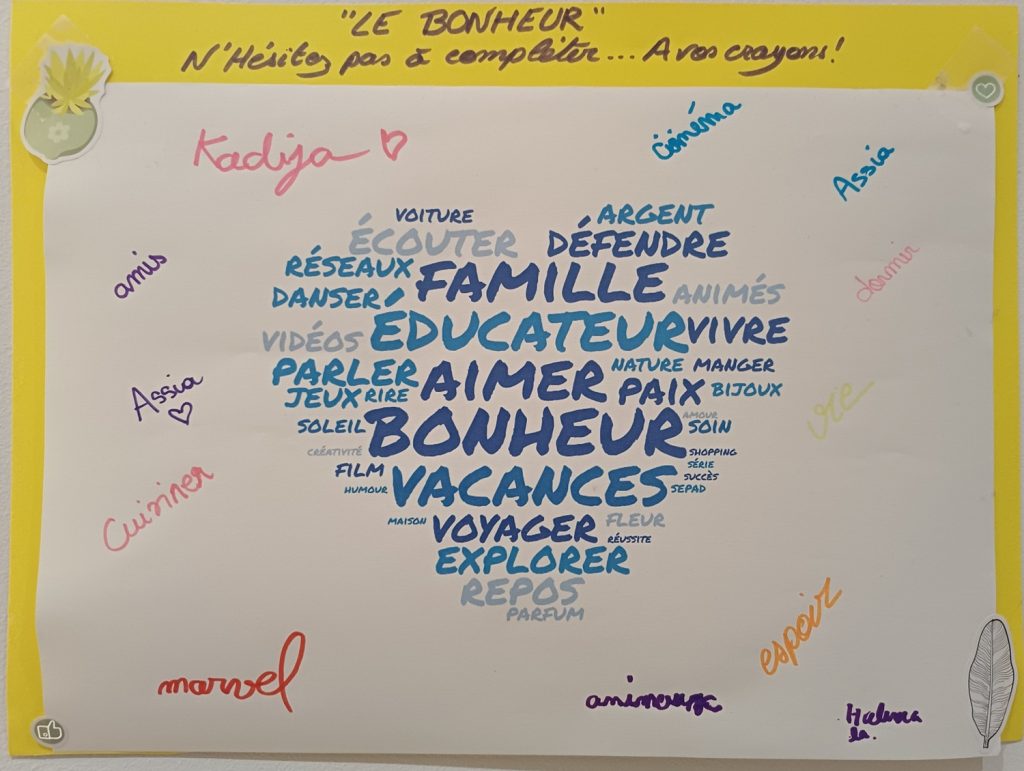 "LE BONHEUR"
N'Hésitez pas à compléter... A vos crayons!
Kadija
cinéma
Assia
amis
dormir
VOITURE
ARGENT
ÉCOUTER
DÉFENDRE
RÉSEAUX
FAMILLE
DANSER
ANIMÉS
VIDÉOS
ÉDUCATEUR
VIVRE
PARLER
AIMER
NATURE
MANGER
JEUX
RIRE
PAIX
BIJOUX
SOLEIL
BONHEUR
AMOUR
SOIN
CRÉATIVITÉ
SHOPPING
FILM
VACANCES
SÉRIE
SUCCÈS
HUMOUR
SEPAD
MAISON
VOYAGER
FLEUR
RÉUSSITE
EXPLORER
REPOS
PARFUM
Assia
vie
Cuisiner
espoir
marvel